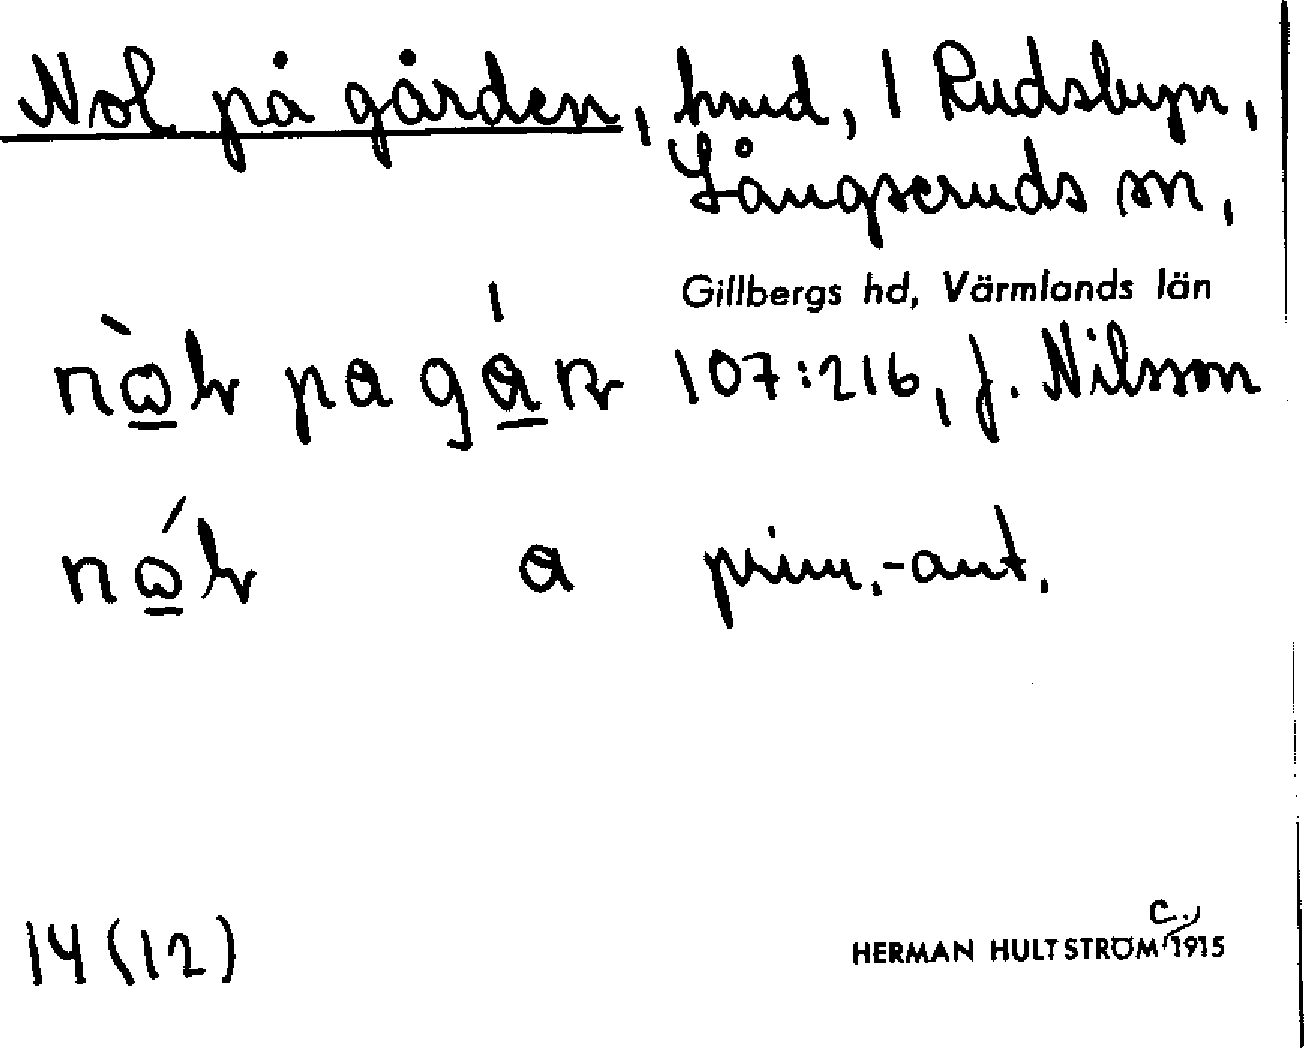 Nol på gården, hmd, 1 Rudsbyn,
Långseruds sn,
Gillbergs hd, Värmlands län
107:216, J. Nilsson
prim.-ant.
14 (12)
HERMAN HULTSTRÖM c. 1915